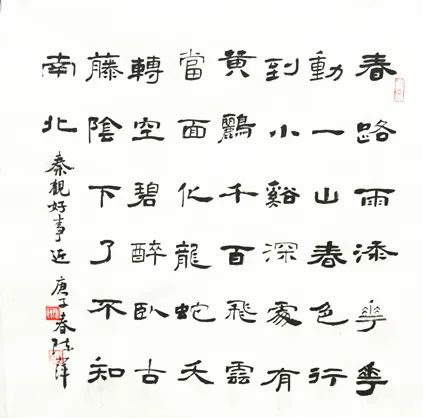 春路雨添華華
動一山春色行
到小谿深處有
黃鸝千百飛雲
當面化龍蛇夭
轉空碧醉卧古
藤陰下了不知
南北
秦觀好事近 庚子春 萍